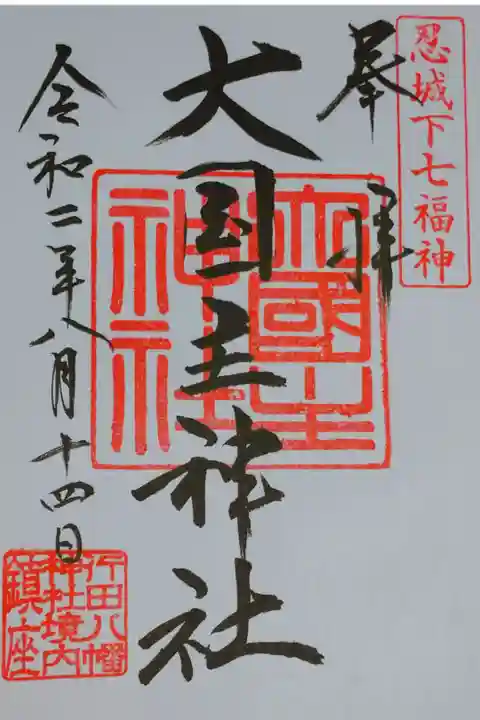 忍城下七福神
奉拝
大国主神社
大國主
神社
令和二年八月十四日
行田八幡
神社境内
鎮座